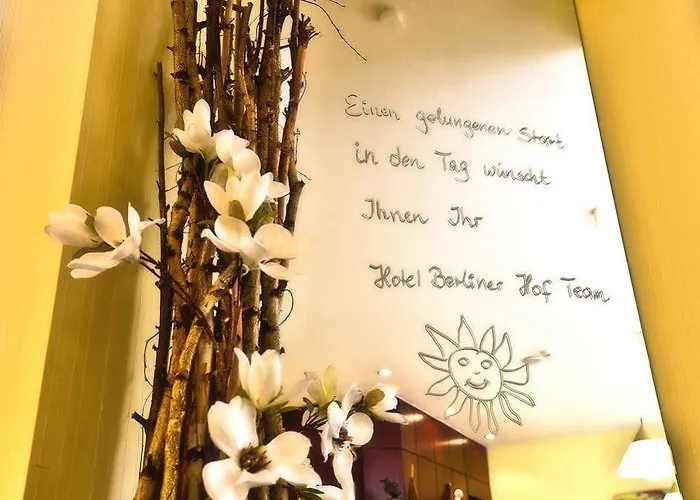 Einen gelungenen Start
in den Tag wünscht
Ihnen Ihr
Hotel Berliner Hof Team